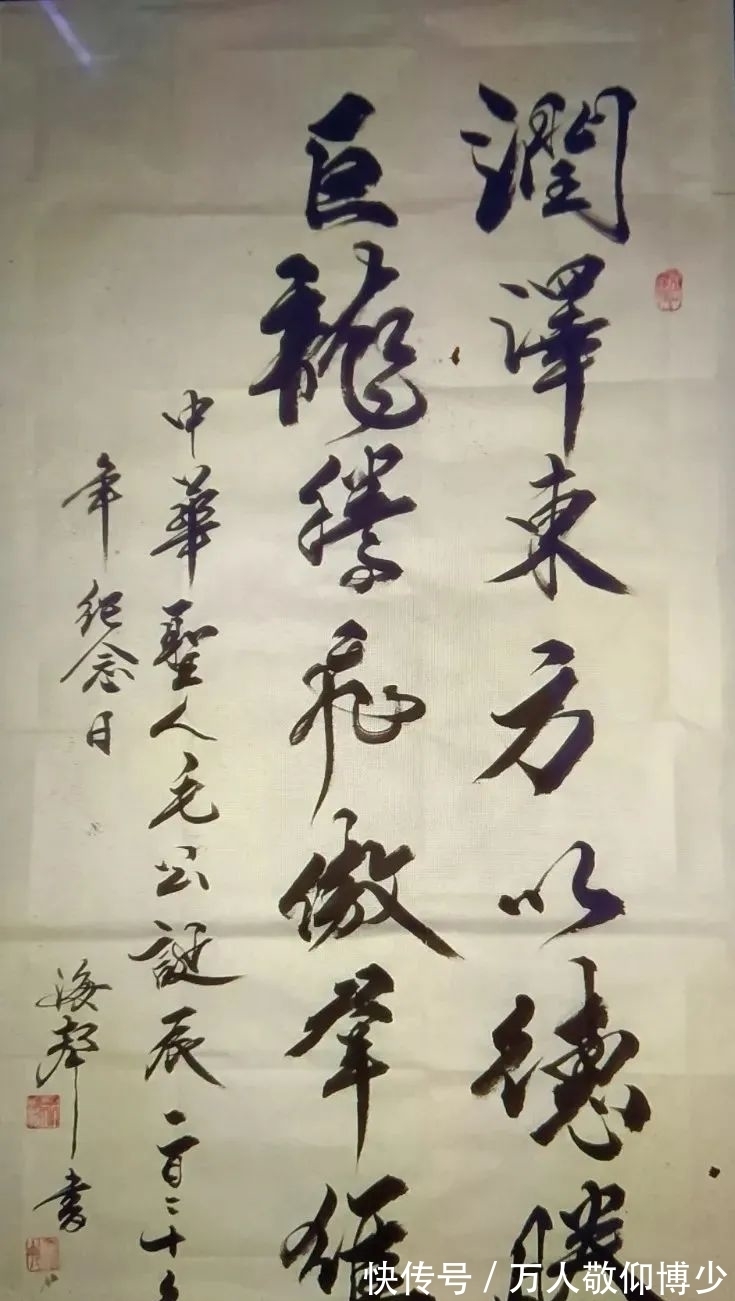 潤澤東方以德勝
巨龍騰飛傲羣雄
中華聖人毛公誕辰一百二十
年紀念日
海 書
快传号 / 万人敬仰博少